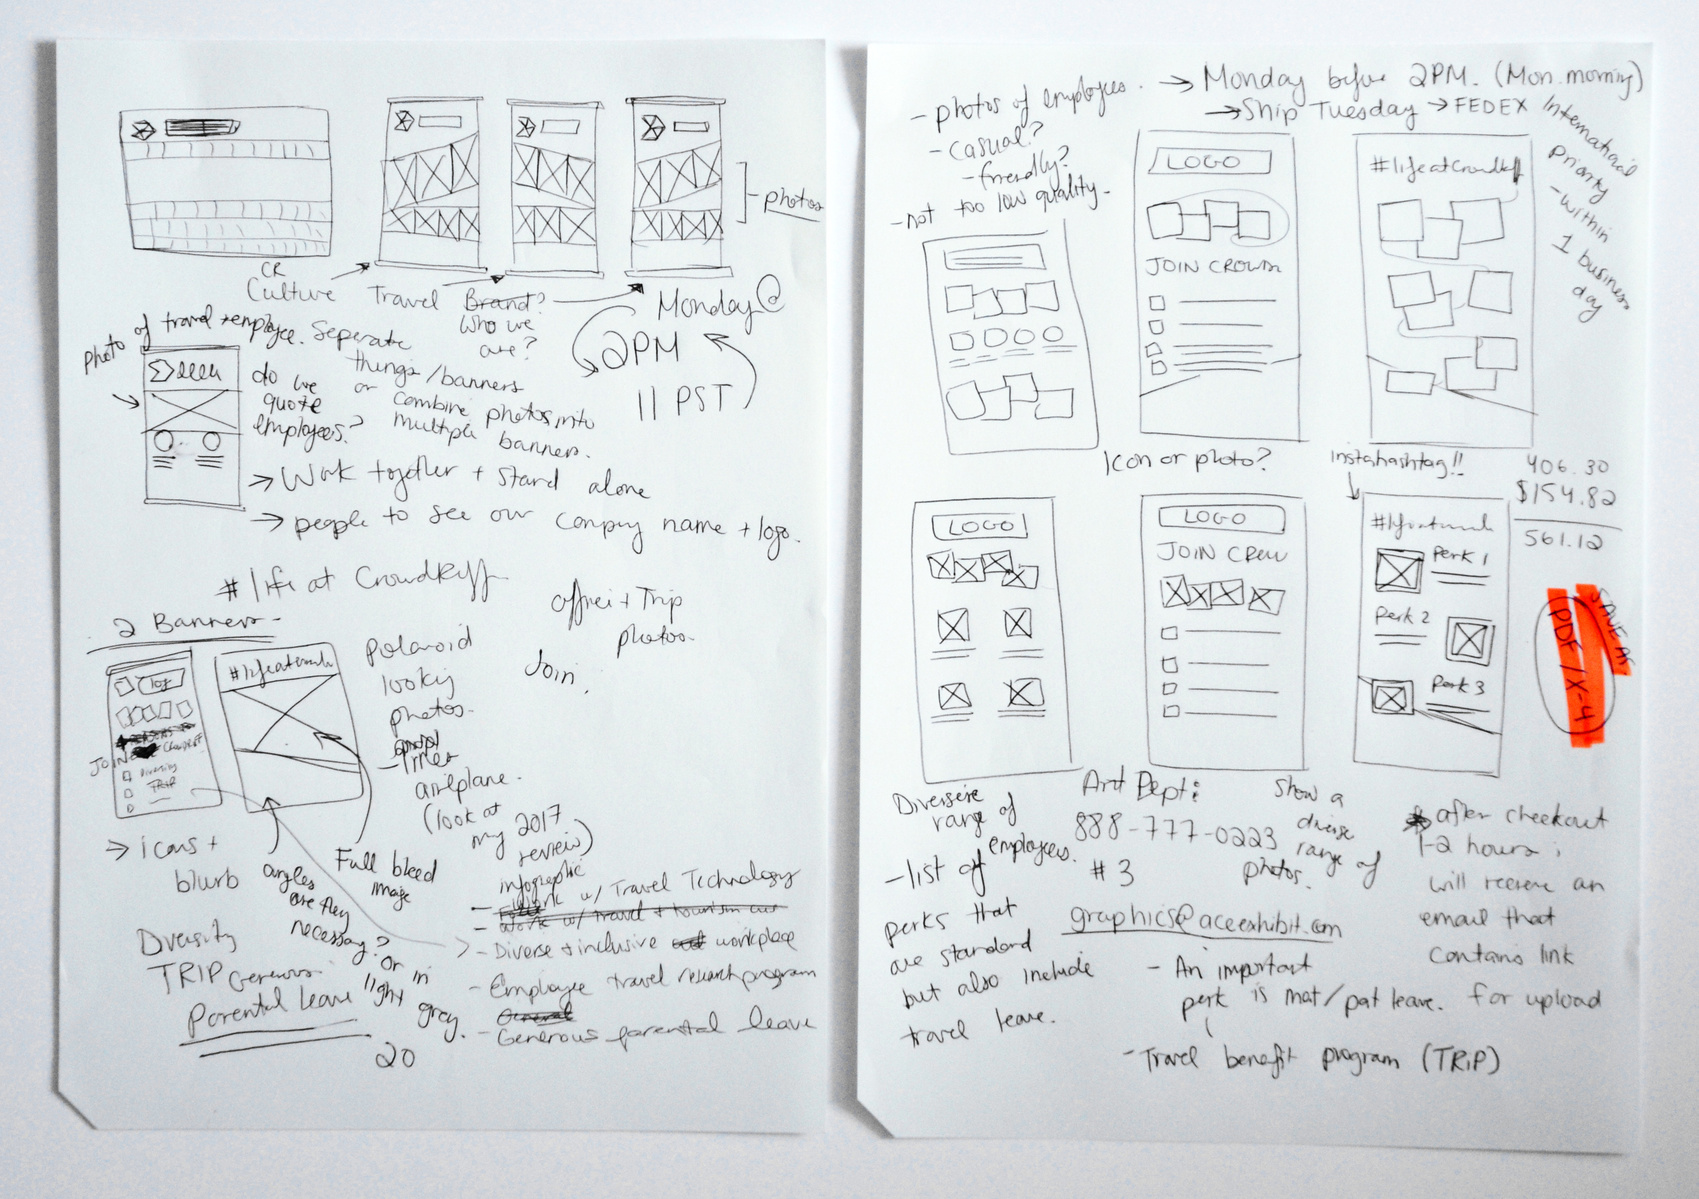 photos
CR
Culture
Travel
Brand?
Who we
are?
Monday @
2PM
11 PST
Photo of travel + employee.
Seperate
things/banners
or
combine photos into
multiple banners.
do we
quote
employees?
→ Work together + stand alone
→ people to see our company name + logo.
#lifeatCrowdRiff
2 Banners
#lifeatcrowd
JOIN
Diversity
TRIP
Polaroid
looking
photos.
airplane.
(look at
my 2017
review)
infographic
Trip
photos.
Join
→ icons +
blurb
angles
are they
necessary?
or in
light
grey.
Full bleed
image
Diversity
TRIP Generous
Parental leave
20
w/ Travel Technology
- Work w/ travel + tourism
- Diverse + inclusive workplace
- Employee travel research program
General
- Generous parental leave
- photos of employees.
- casual?
- friendly?
- not too low quality.
→ Monday before 2PM. (Mon. morning)
→ Ship Tuesday → FEDEX International
Priority
- within
1 business
day
LOGO
JOIN CROWD
#lifeatCrowdRiff
Icon or photo?
instahashtag!!
406.30
$154.82
561.12
LOGO
LOGO
JOIN CROW
Perk 1
Perk 2
Perk 3
SAVE AS
PDF/X-4
range of
employees.
- list of
perks that
are standard
but also include
travel leave.
Art Dept:
888-777-0223
#3
graphics@aceexhibit.com
Show a
diverse
range of
photos.
- An important
perk is mat/pat leave.
- Travel benefit program (TRIP)
* after checkout
1-2 hours,
will receive an
email that
contains link
for upload